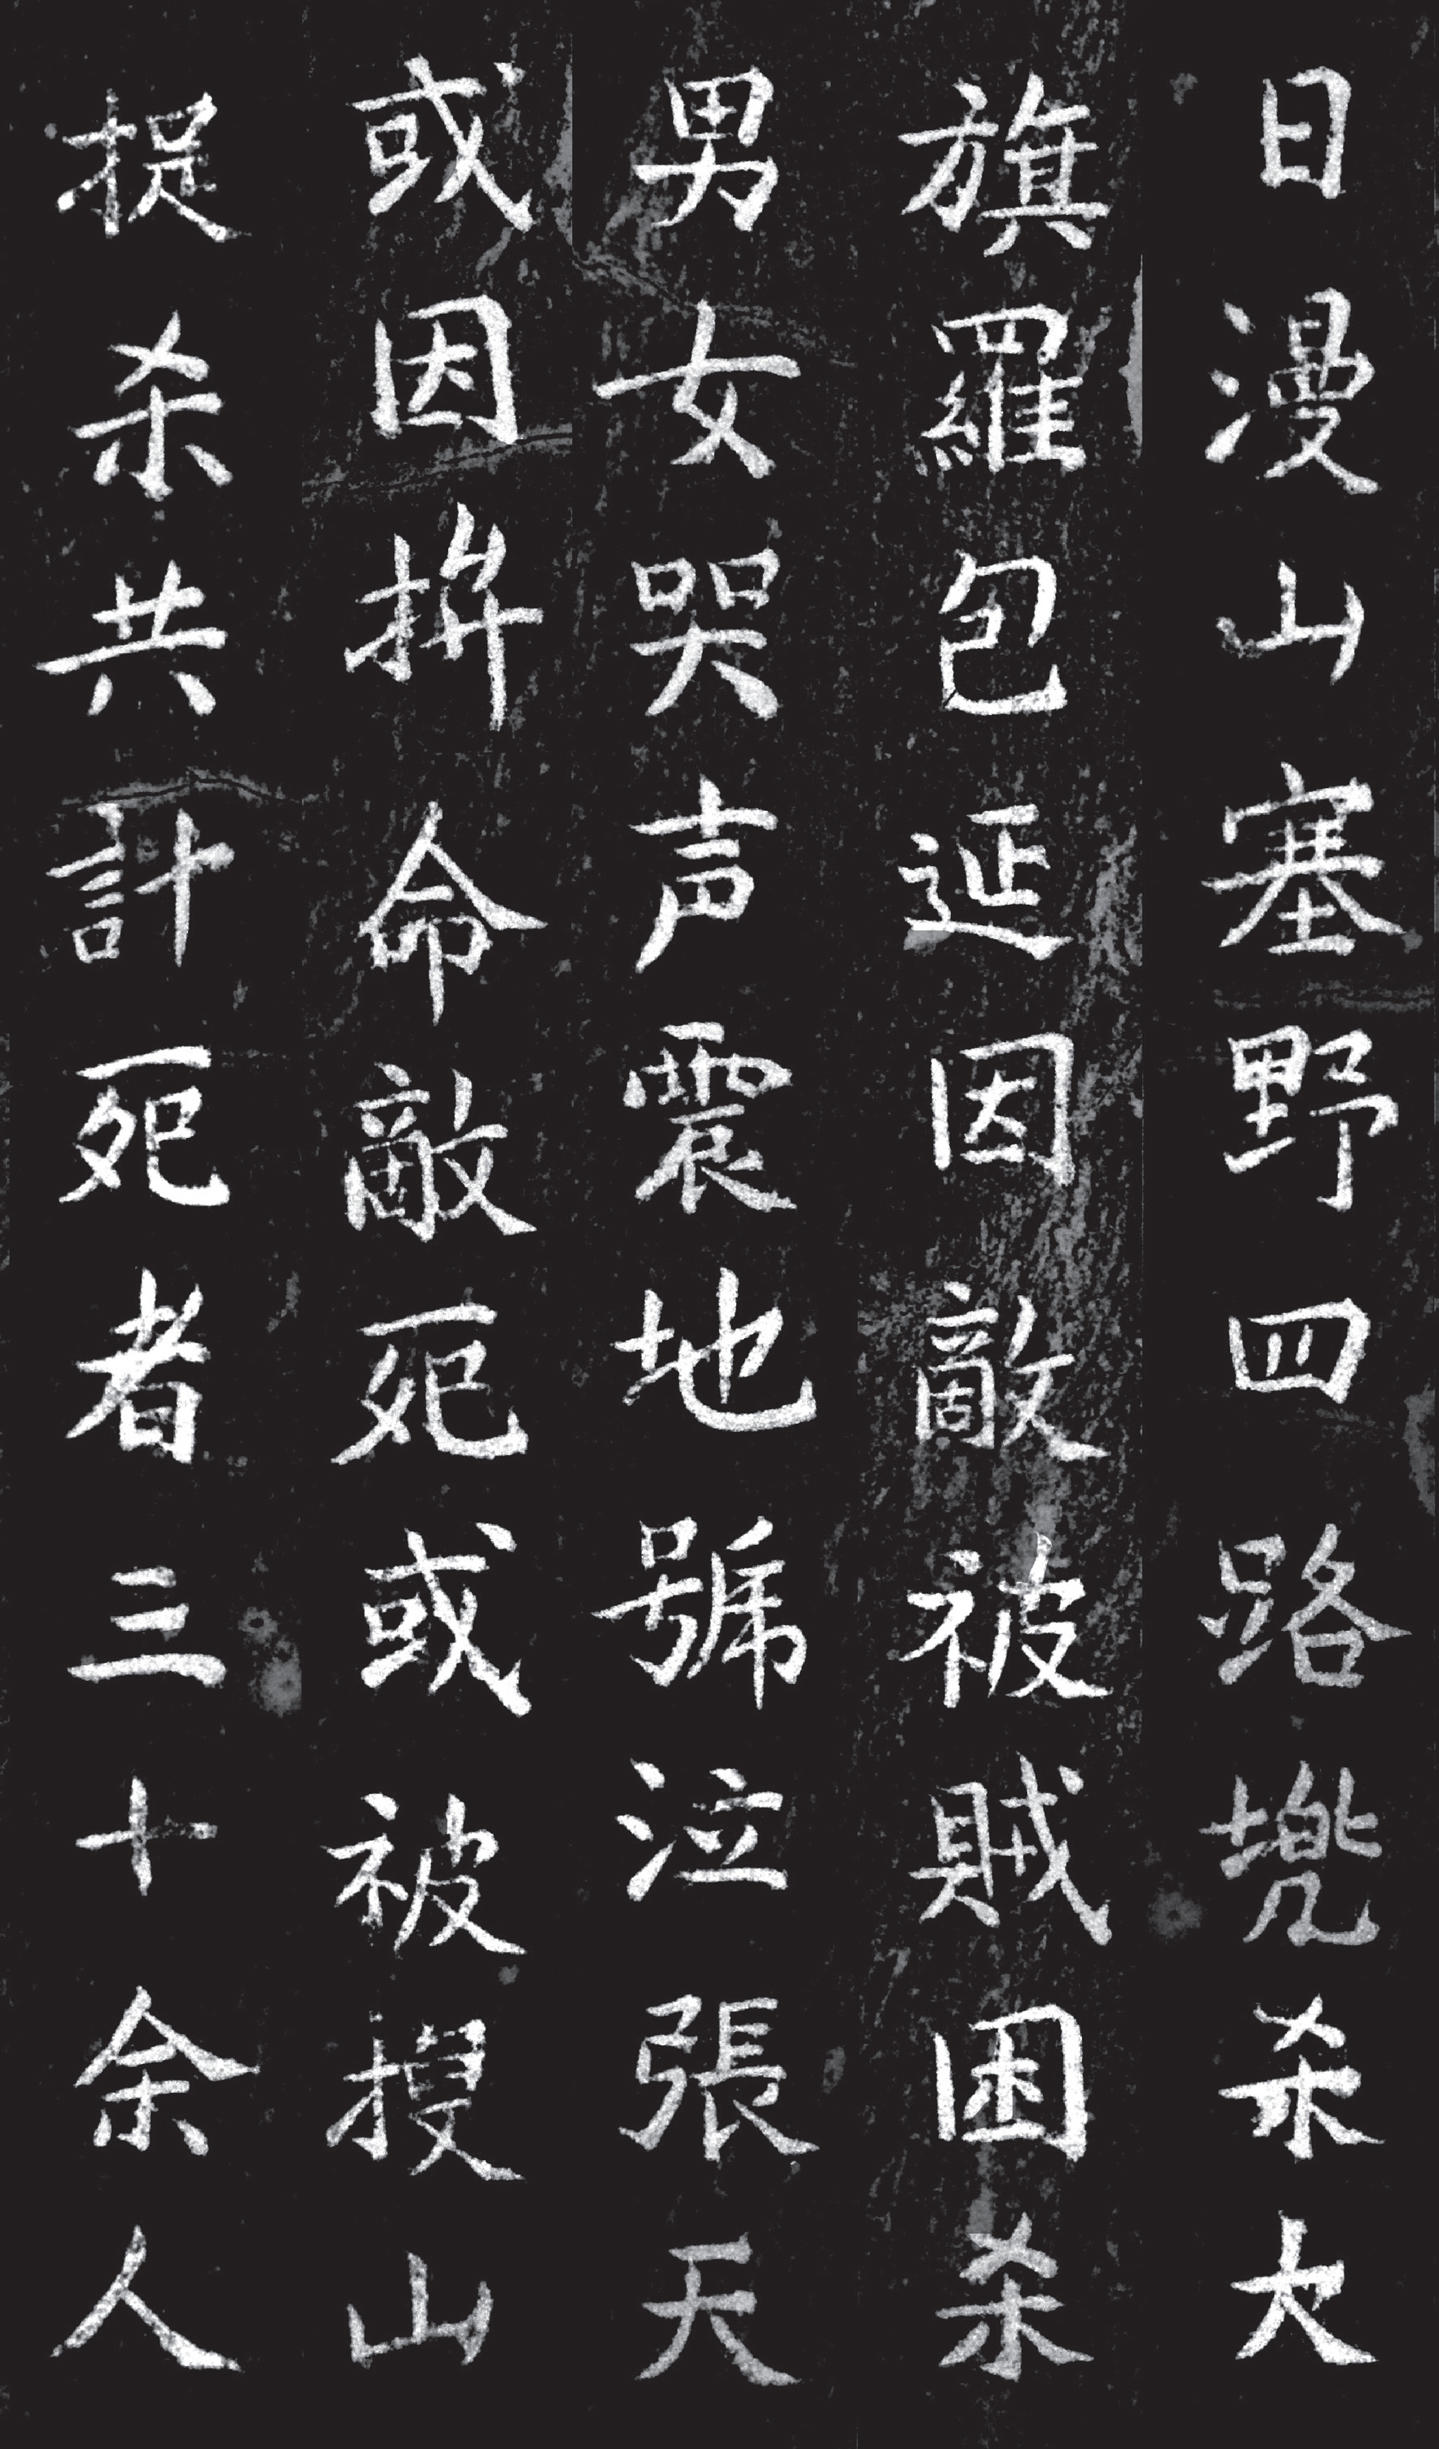 日漫山塞野四路兠杀大
旗羅包延因敵被賊困杀
男女哭声震地號泣張天
或因拚命敵死或被搜山
捉杀共計死者三十余人